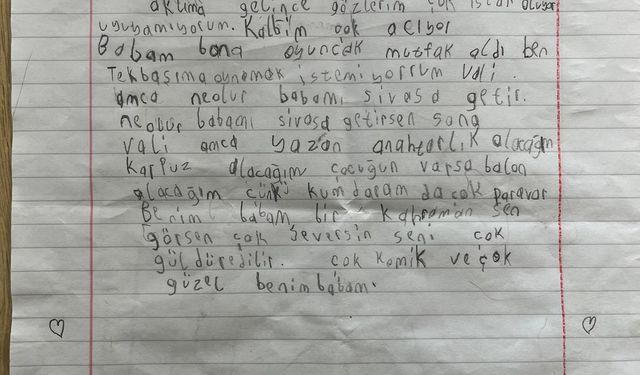 aklıma gelince gözlerim çok ıslak oluyor
uyuyamıyorum. Kalbim çok acıyor
Babam bana oyuncak mutfak aldı ben
Tekbaşıma oynamak istemiyorrum vali.
amca neolur babamı sivasa getir.
neolur babamı sivasa getirsen sana
vali amca yazan anahtarlık alacağım
karpuz alacağım çocuğun varsa balon
alacağım çünki kumdaram da çok paravar
Benim babam bir kahraman sen
görsen çok seversin seni çok
güldüredilir. çok komik ve çok
güzel benim babam.